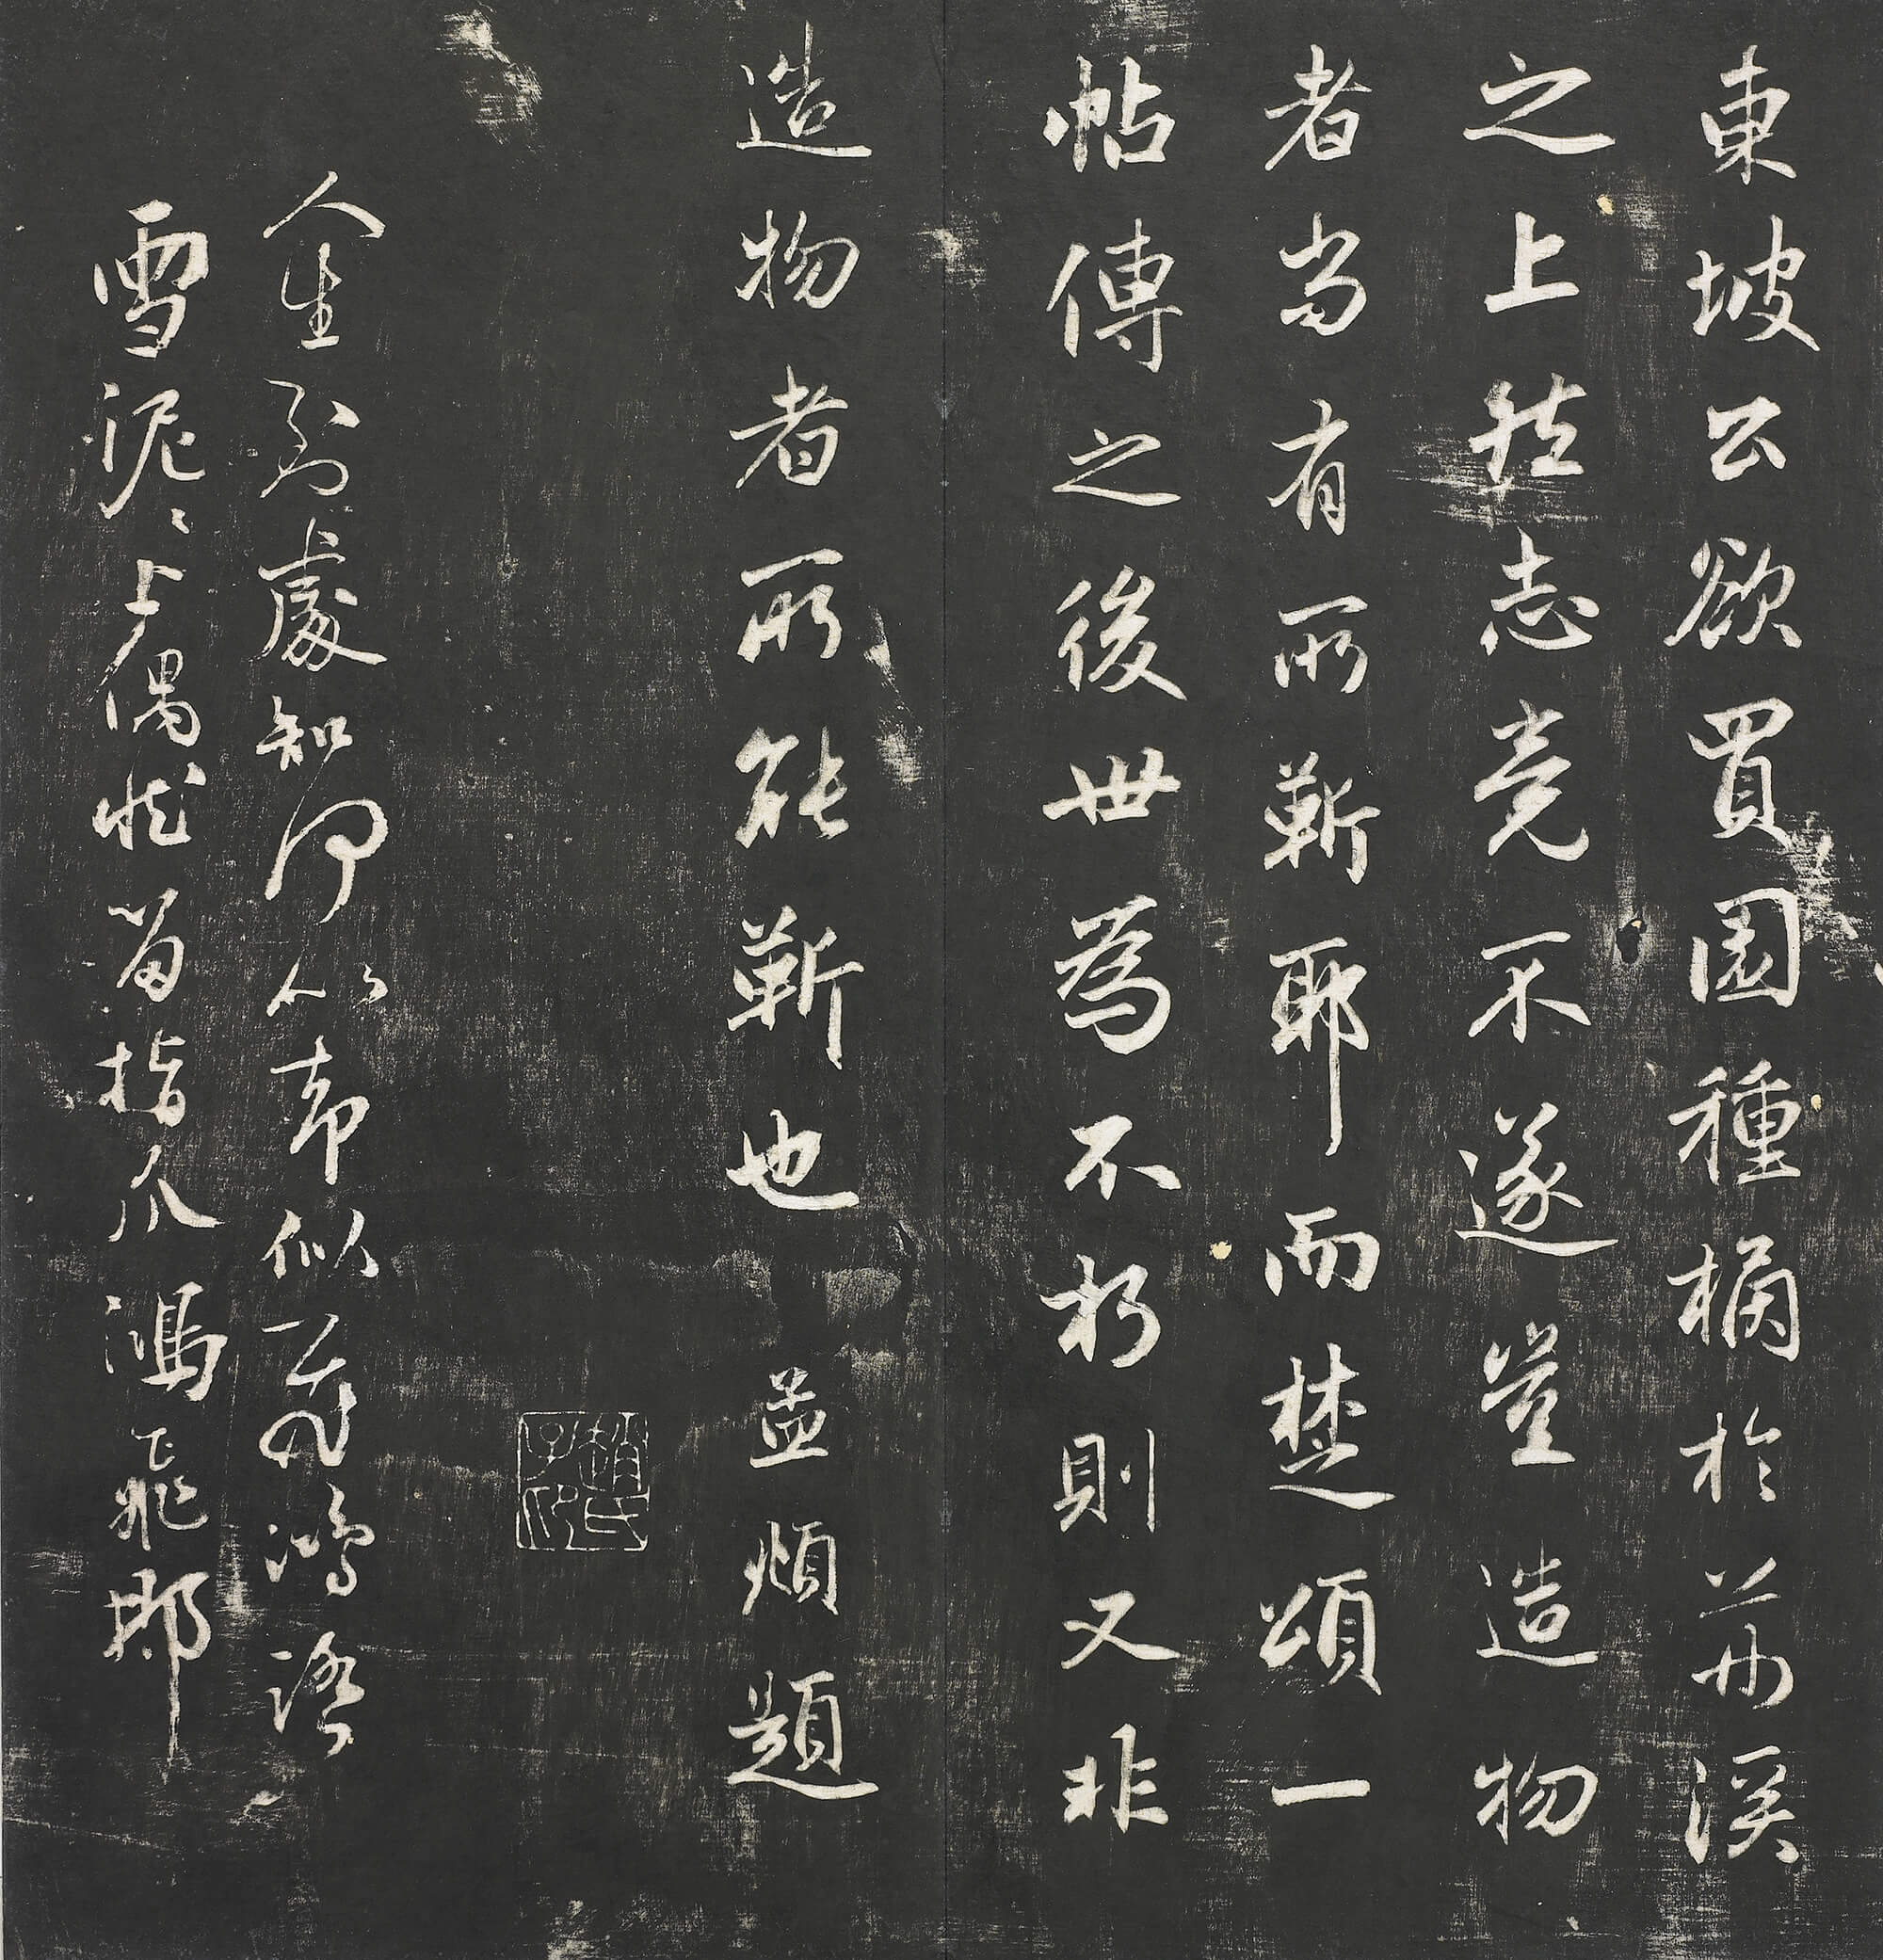 東坡公欲買園種橘於荊溪
之上然志竟不遂豈造物
者當有所靳耶而楚頌一
帖傳之後世為不朽則又非
造物者所能靳也 孟頫題
趙氏子昂
人生到處知何似應似飛鴻踏
雪泥〻上偶然留指爪鴻飛那